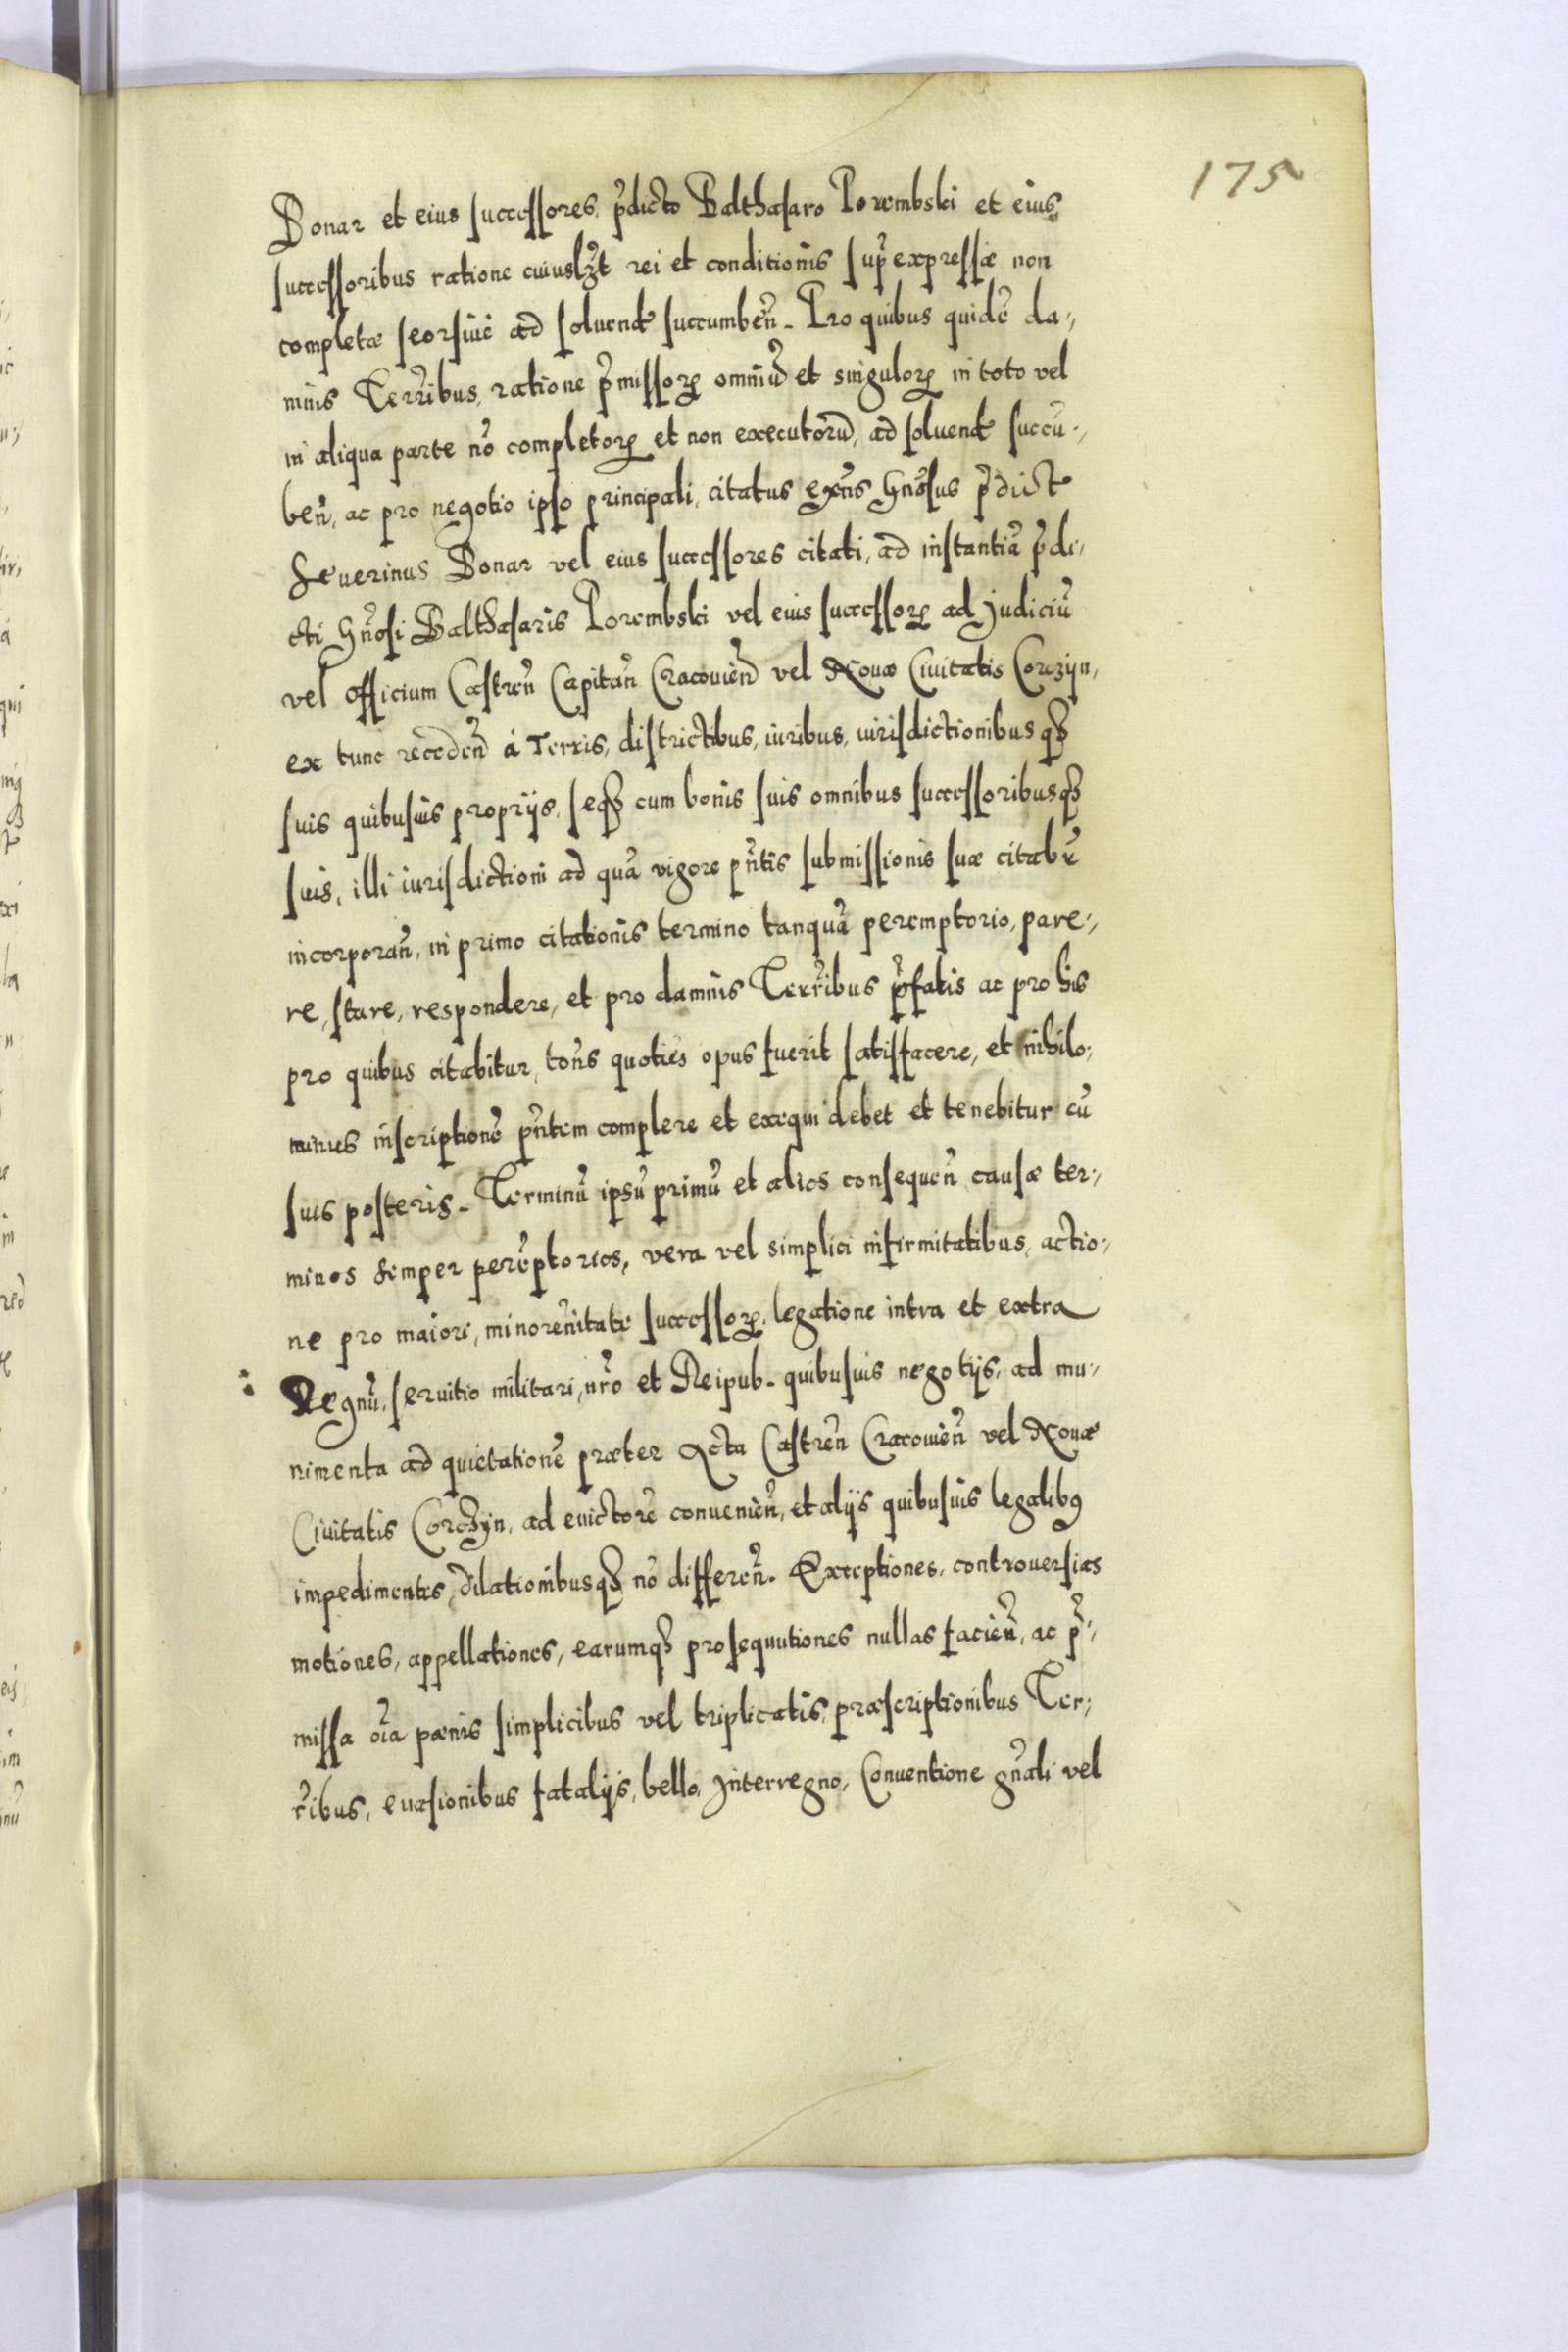 175
Bonar et eius successores, p̃dicto Balthasaro Porembski et eius
successoribus ratione cuiuslꝫt rei et conditionis sup̃ expressæ non
completæ seorsiue ad soluend succumbeñ. Pro quibus quidẽ da-,
mnis Terr̃ibus, ratione p̃missoꝝ omniũ et singuloꝝ in toto vel
in aliqua parte nõ completoꝝ et non executorũ, ad soluend succũ-,
beñ, ac pro negotio ipso principali, citatus exñs Gnõsus p̃dict
Seuerinus Bonar vel eius successores citati, ad instantiã p̃di-,
cti Gñosi Balthasaris Porembski vel eius successoꝝ ad Judiciũ
vel Officium Castreñ Capitañ Cracouieñ vel Nouæ Ciuitatis Corczyn,
ex tunc recedeñd á Terris, districtibus, iuribus, iurisdictionibusqꝫ
suis quibusuis proprijs, seqꝫ cum bonis suis omnibus successoribusqꝫ
suis, illi iurisdictioni ad quã vigore pñtis submissionis suæ citabr̃
incorporañ, in primo citationis termino tanquã peremptorio, pare-,
re, stare, respondere, et pro damnis Terr̃ibus p̃fatis ac pro his
pro quibus citabitur, tõns quoties opus fuerit satisfacere, et nihilo-,
minus inscriptionẽ pñtem complere et exequi debet et tenebitur cũ
suis posteris. Terminũ ipsũ primũ et alios consequeñ causæ ter-,
minos semper perẽptorios, vera vel simplici infirmitatibus, actio-,
ne pro maiori, minorẽnitate successoꝝ, legatione intra et extra
Regnũ, seruitio militari, nr̃o et Reipub. quibusuis negotijs, ad mu-,
nimenta ad quietationẽ præter Acta Castreñ Cracouieñ vel Nouæ
Ciuitatis Corczyn, ad euictorẽ conuenieñ, et alijs quibusuis legalibꝰ
impedimentis, dilationibusqꝫ nõ differeñ. Exceptiones, controuersias
motiones, appellationes, earumqꝫ prosequutiones nullas facieñ, ac p̃-,
missa oĩa pænis simplicibus vel triplicatis, præscriptionibus Ter-,
r̃ibus, euasionibus fatalijs, bello, Interregno, Conuentione gñali vel